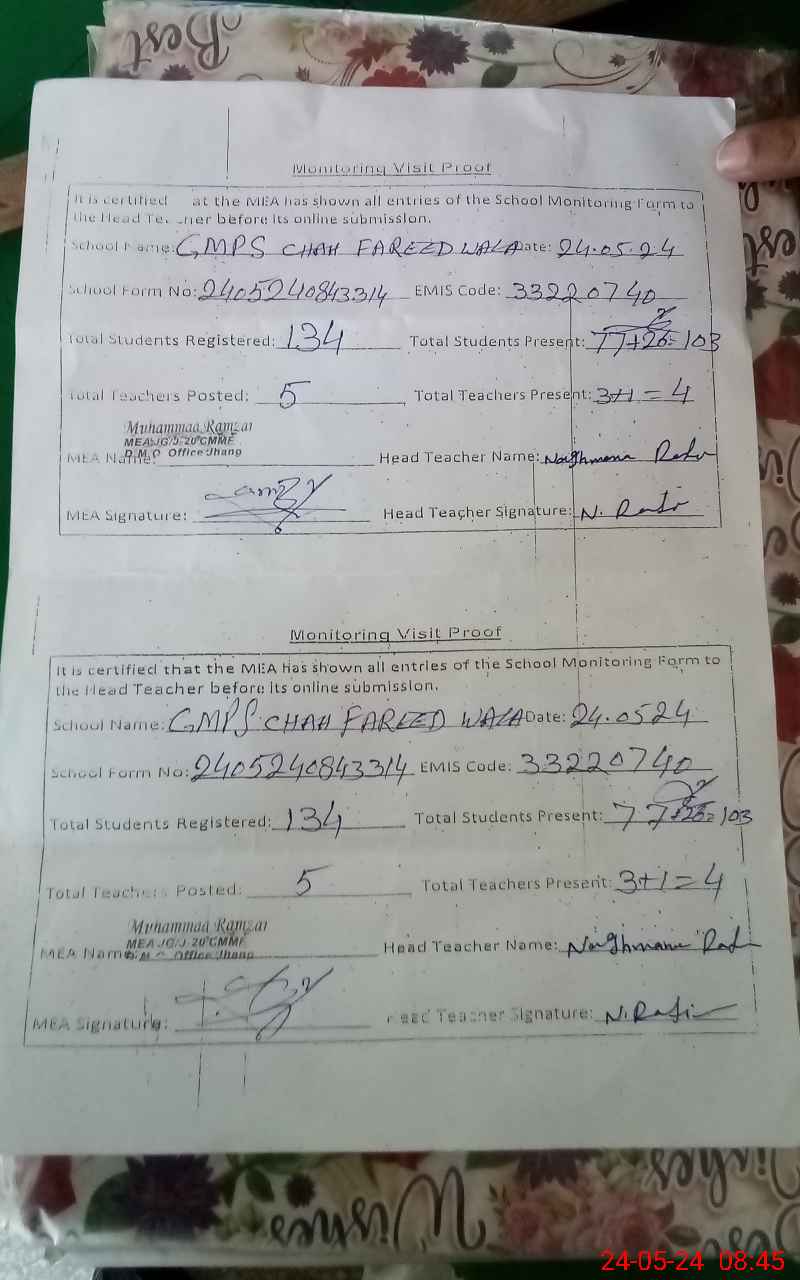 Best
Monitoring Visit Proof
It is certified at the MEA has shown all entries of the School Monitoring Form to
the Head Te cher before its online submission.
School Name: GMPS CHAH FAREED WALA Date: 24.05.24
School Form No: 2405240843314 EMIS Code: 33220740
Total Students Registered: 134 Total Students Present: 77+26=103
Total Teachers Posted: 5 Total Teachers Present: 3+1=4
Muhammad Ramzan
MEA JG/J-20 CMMF
MEA Name: D.M.O Office Jhang Head Teacher Name: Naghmana
MEA Signature: Head Teacher Signature: N.
Monitoring Visit Proof
It is certified that the MEA has shown all entries of the School Monitoring Form to
the Head Teacher before its online submission.
School Name: GMPS CHAH FAREED WALA Date: 24.0524
School Form No: 2405240843314 EMIS Code: 33220740
Total Students Registered: 134 Total Students Present: 77+26=103
Total Teachers Posted: 5 Total Teachers Present: 3+1=4
Muhammad Ramzan
MEA JG/J-20 CMMF
MEA Name: D.M.O Office Jhang Head Teacher Name: Naghmana
MEA Signature: Head Teacher Signature: N.
Wishes
24-05-24 08:45